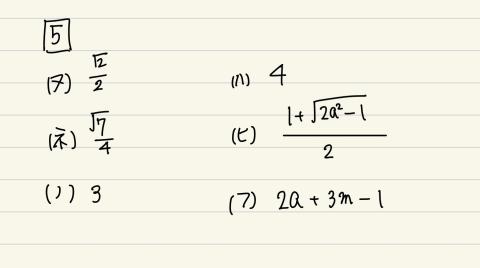 5
(ヌ) √2/2
(ネ) √7/4
(ノ) 3
(ハ) 4
(ヒ) (1+√(2a²-1))/2
(フ) 2a+3n-1